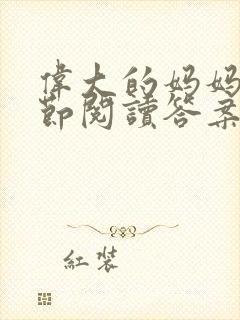 偉大的媽媽
節閱讀答案
紅裝